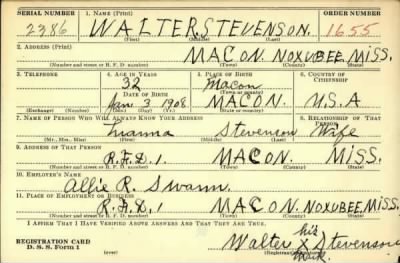 SERIAL NUMBER 1. NAME (Print) ORDER NUMBER
2386 WALTER STEVENSON. 1655
(First) (Middle) (Last)
2. ADDRESS (Print)
MACON. NOXUBEE. MISS.
(Number and street or R. F. D. number) (Town) (County) (State)
3. TELEPHONE 4. AGE IN YEARS 5. PLACE OF BIRTH 6. COUNTRY OF CITIZENSHIP
32 Macon
DATE OF BIRTH (Town or county)
Jan 3 1908 MACON. U.S.A
(Exchange) (Number) (Mo.) (Day) (Yr.) (State or country)
7. NAME OF PERSON WHO WILL ALWAYS KNOW YOUR ADDRESS 8. RELATIONSHIP OF THAT PERSON
Stevenson Wife
(Mr., Mrs., Miss) (First) (Middle) (Last)
9. ADDRESS OF THAT PERSON
R.F.D.1 MACON. MISS.
(Number and street or R. F. D. number) (Town) (County) (State)
10. EMPLOYER'S NAME
Allie R. Swann.
11. PLACE OF EMPLOYMENT OR BUSINESS
R.F.D.1 MACON. NOXUBEE. MISS.
(Number and street or R. F. D. number) (Town) (County) (State)
I AFFIRM THAT I HAVE VERIFIED ABOVE ANSWERS AND THAT THEY ARE TRUE.
his
REGISTRATION CARD Walter X Stevenson
D. S. S. Form 1 mark.
(over)